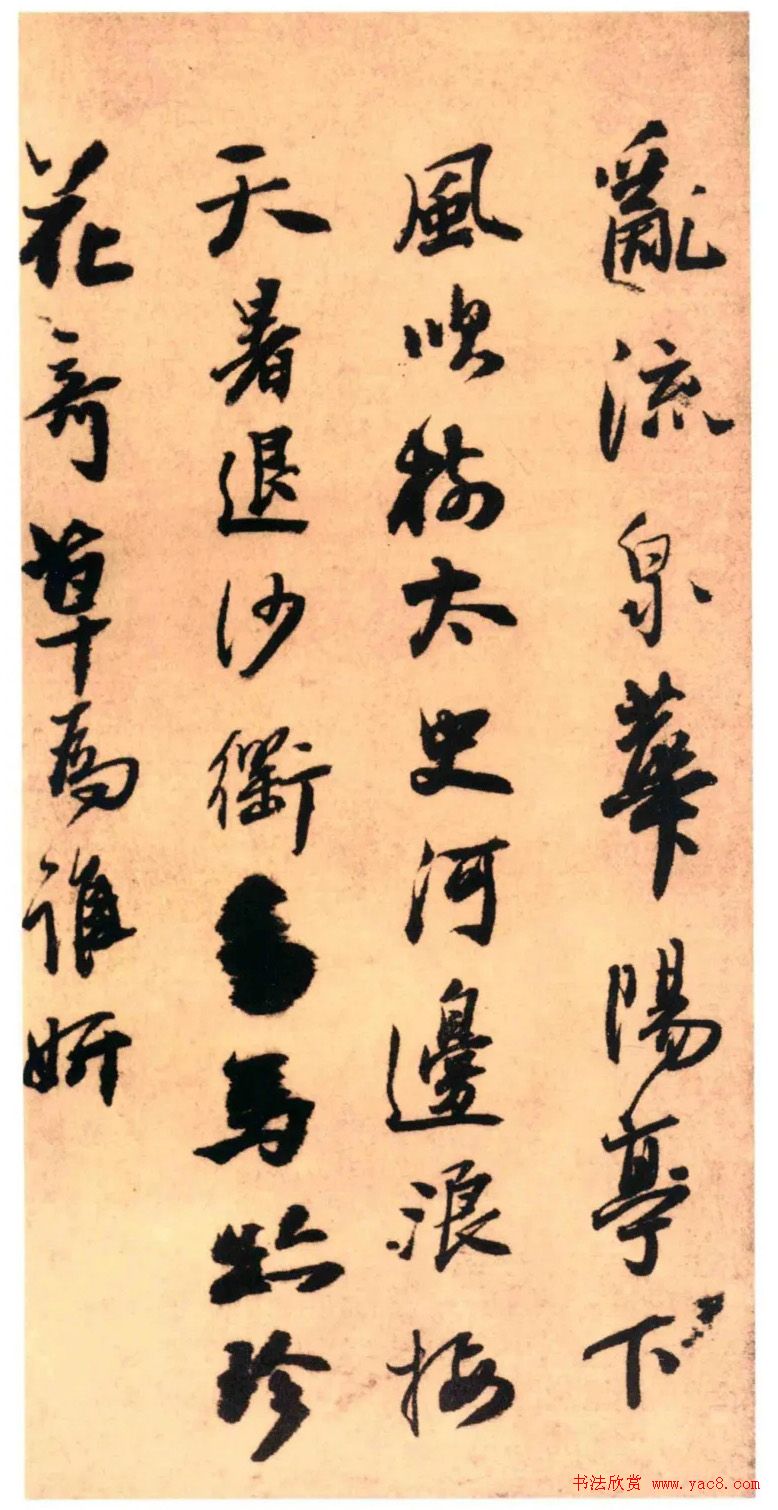 亂流泉華陽亭下
風吹樹太史河邊浪接
天暑退沙衢馬跡珍
花奇草為誰妍
书法欣赏 www.yac8.com